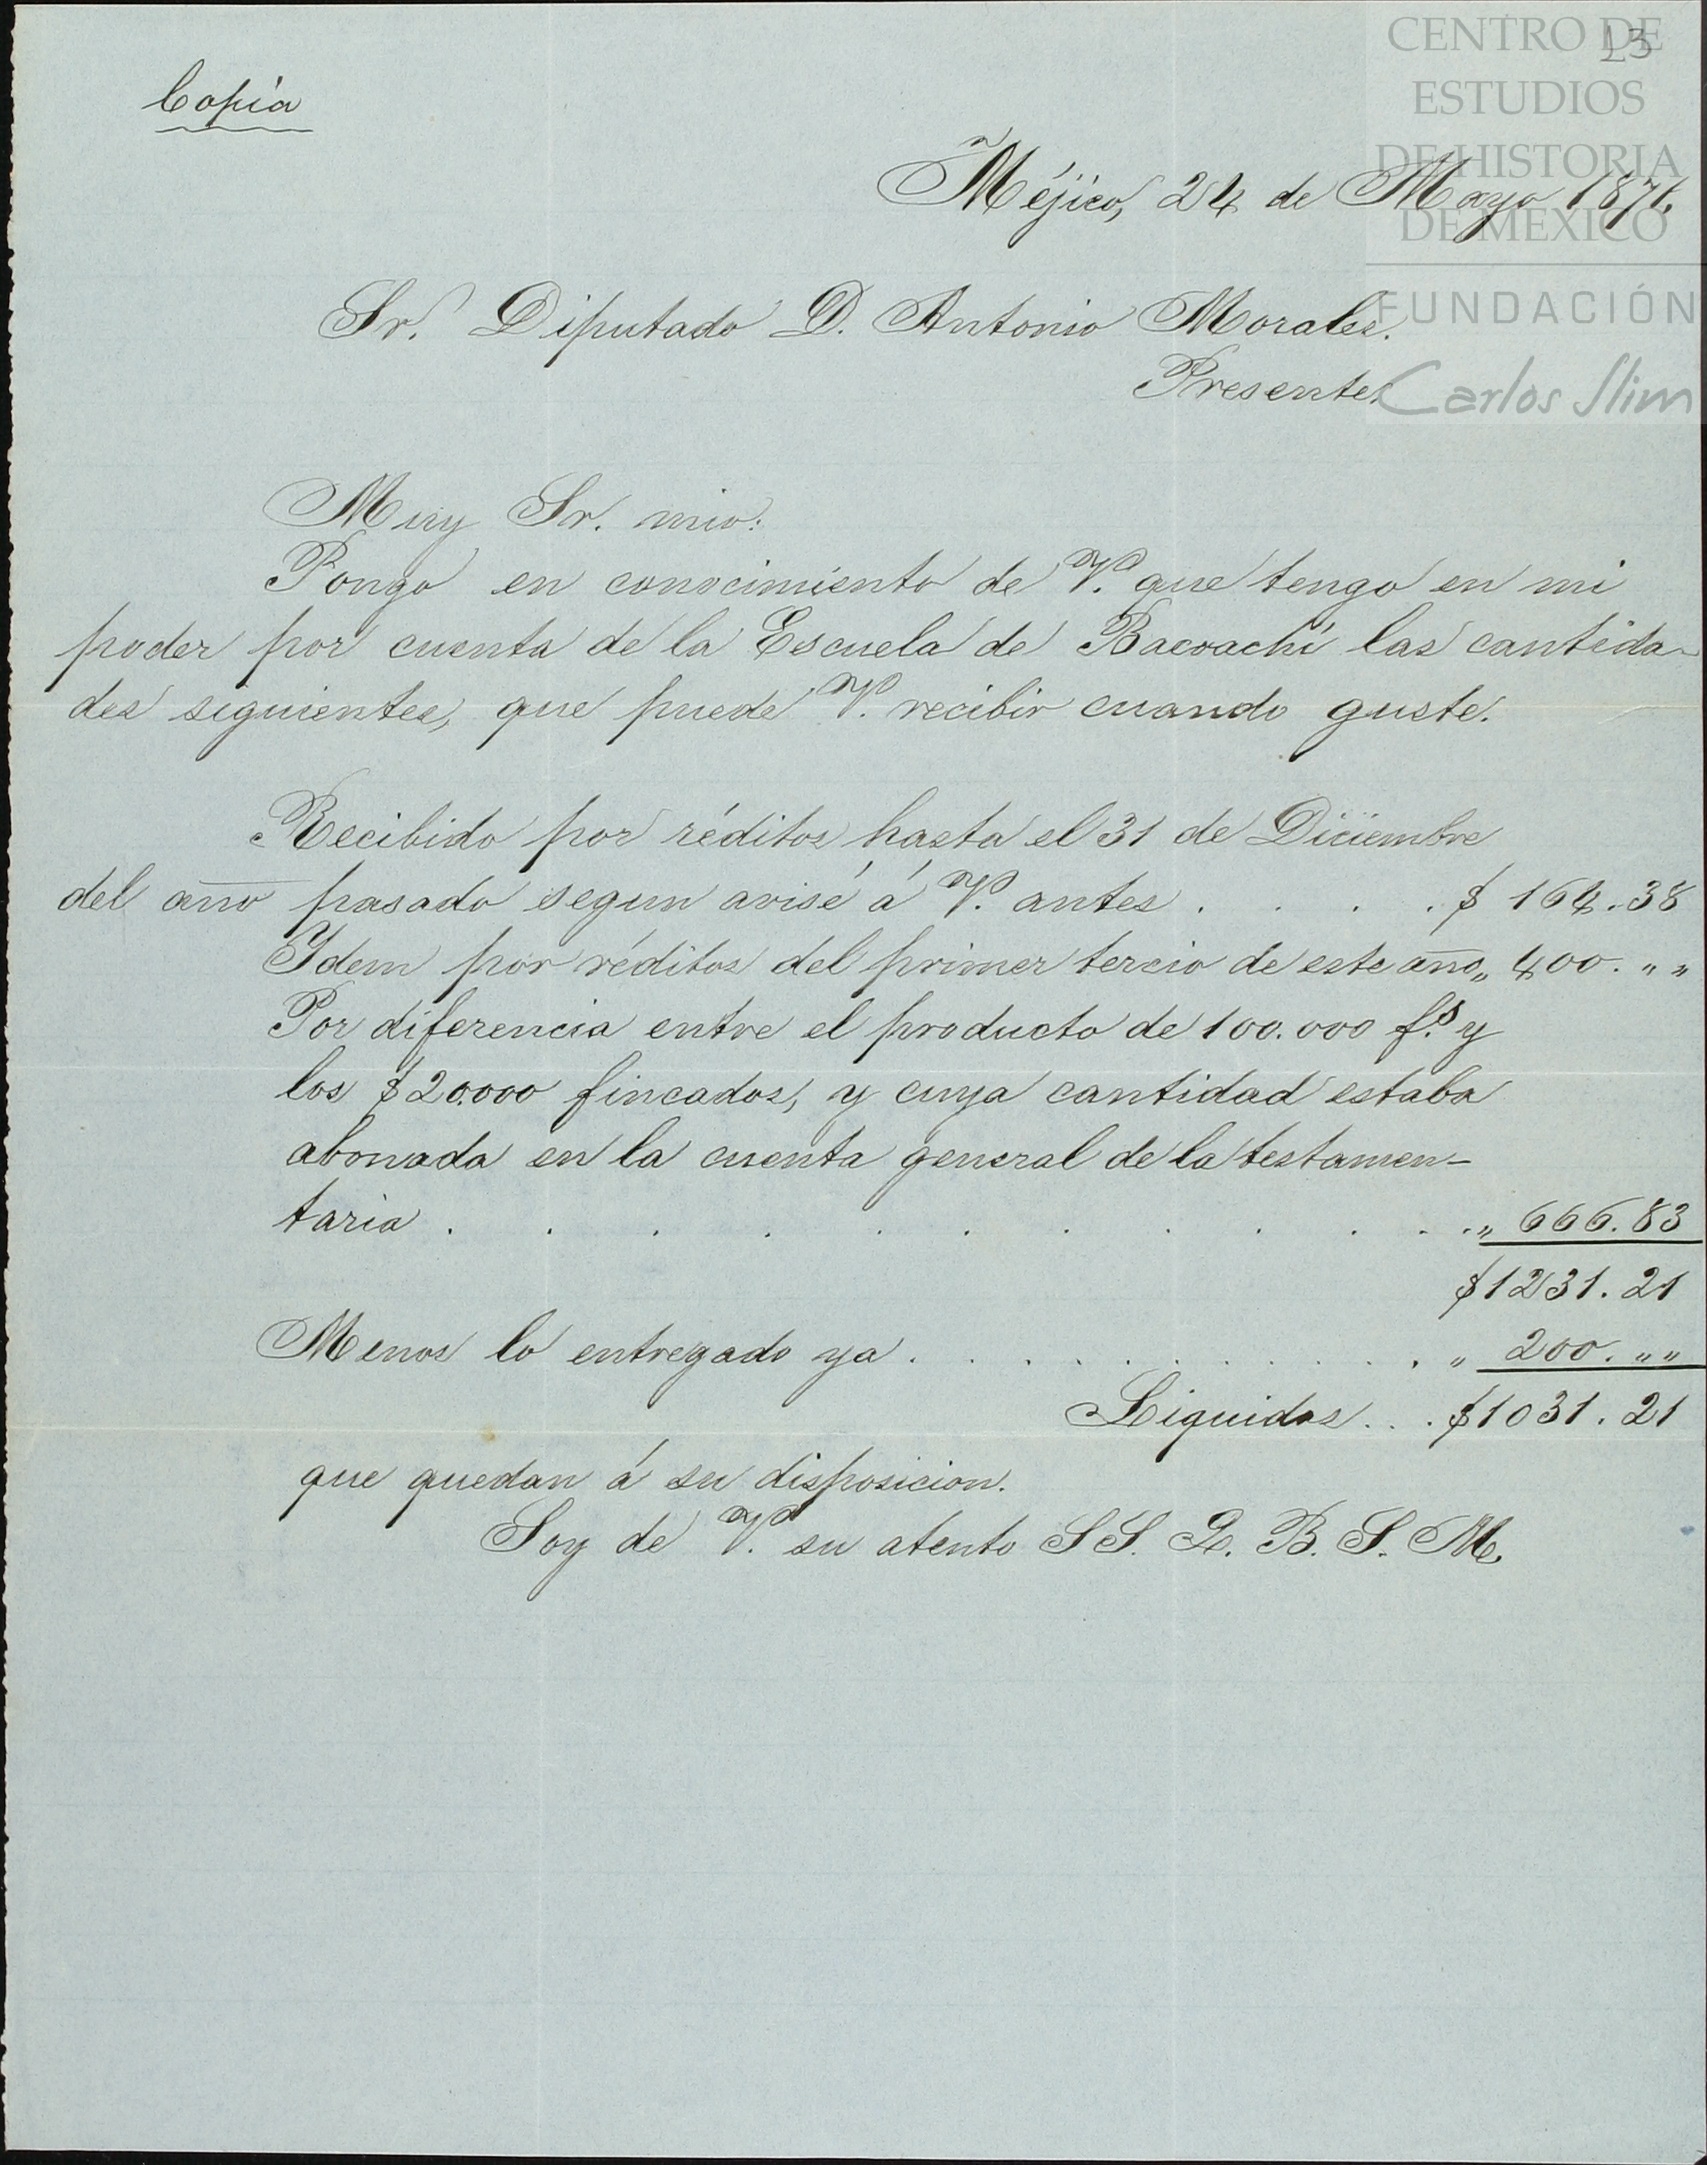 CENTRO DE
ESTUDIOS
DE HISTORIA
DE MEXICO
FUNDACIÓN
Carlos Slim
13
Copia
Méjico, 24 de Mayo 1871.
Sr. Diputado D. Antonio Morales.
Presente.
Muy Sr. mio:
Pongo en conocimiento de V. que tengo en mi
poder por cuenta de la Escuela de Bacoachi las cantida-
des siguientes, que puede V. recibir cuando guste.
Recibido por réditos hasta el 31 de Diciembre
del año pasado segun avisé á V. antes . . . . $ 164.38
Idem por réditos del primer tercio de este año „ 400. „ „
Por diferencia entre el producto de 100.000 f.s y
los $20.000 fincados, y cuya cantidad estaba
abonada en la cuenta general de la testamen-
taria . . . . . . . . . . . „ 666.83
$1231.21
Menos lo entregado ya . . . . . . . . . . . „ 200. „ „
Liquidos . . . $1031.21
que quedan á su disposicion.
Soy de V. su atento S S. Q. B. S. M.